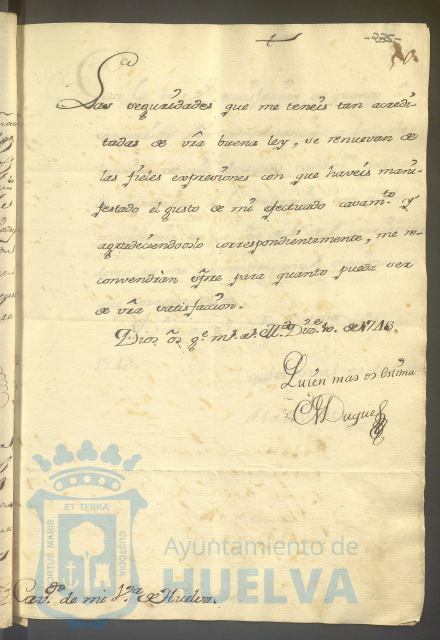 -235-
Las seguridades que me teneis tan acredi-
tadas de vr̃a buena ley, se renuevan de
las fieles expresiones con que haveis mani-
festado el gusto de mi efectuado casam.to y
agradeciendooslo correspondientemente, me re-
convendràn sp̃re para quanto pueda ser
de vr̃a satisfaccion.
Dios os g.e m.s a.s M.d Diz.e 10. de 1718.
Quien màs os estima
El Duque
Cav.do de mi V.a de Huelva.
PORTUS MARIS
ET TERRÆ
CUSTODIA
Ayuntamiento de
HUELVA